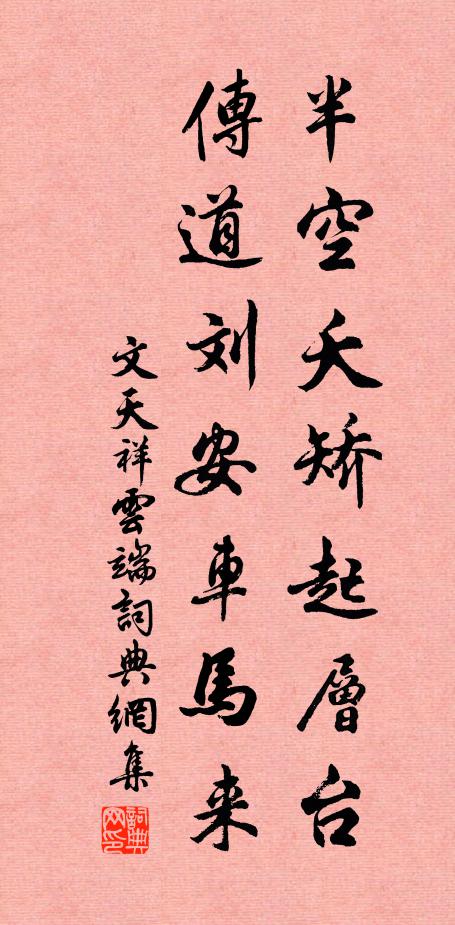 半空夭矫起層台
傳道刘安車馬来
文天祥雲端詞典網集
詞典网印